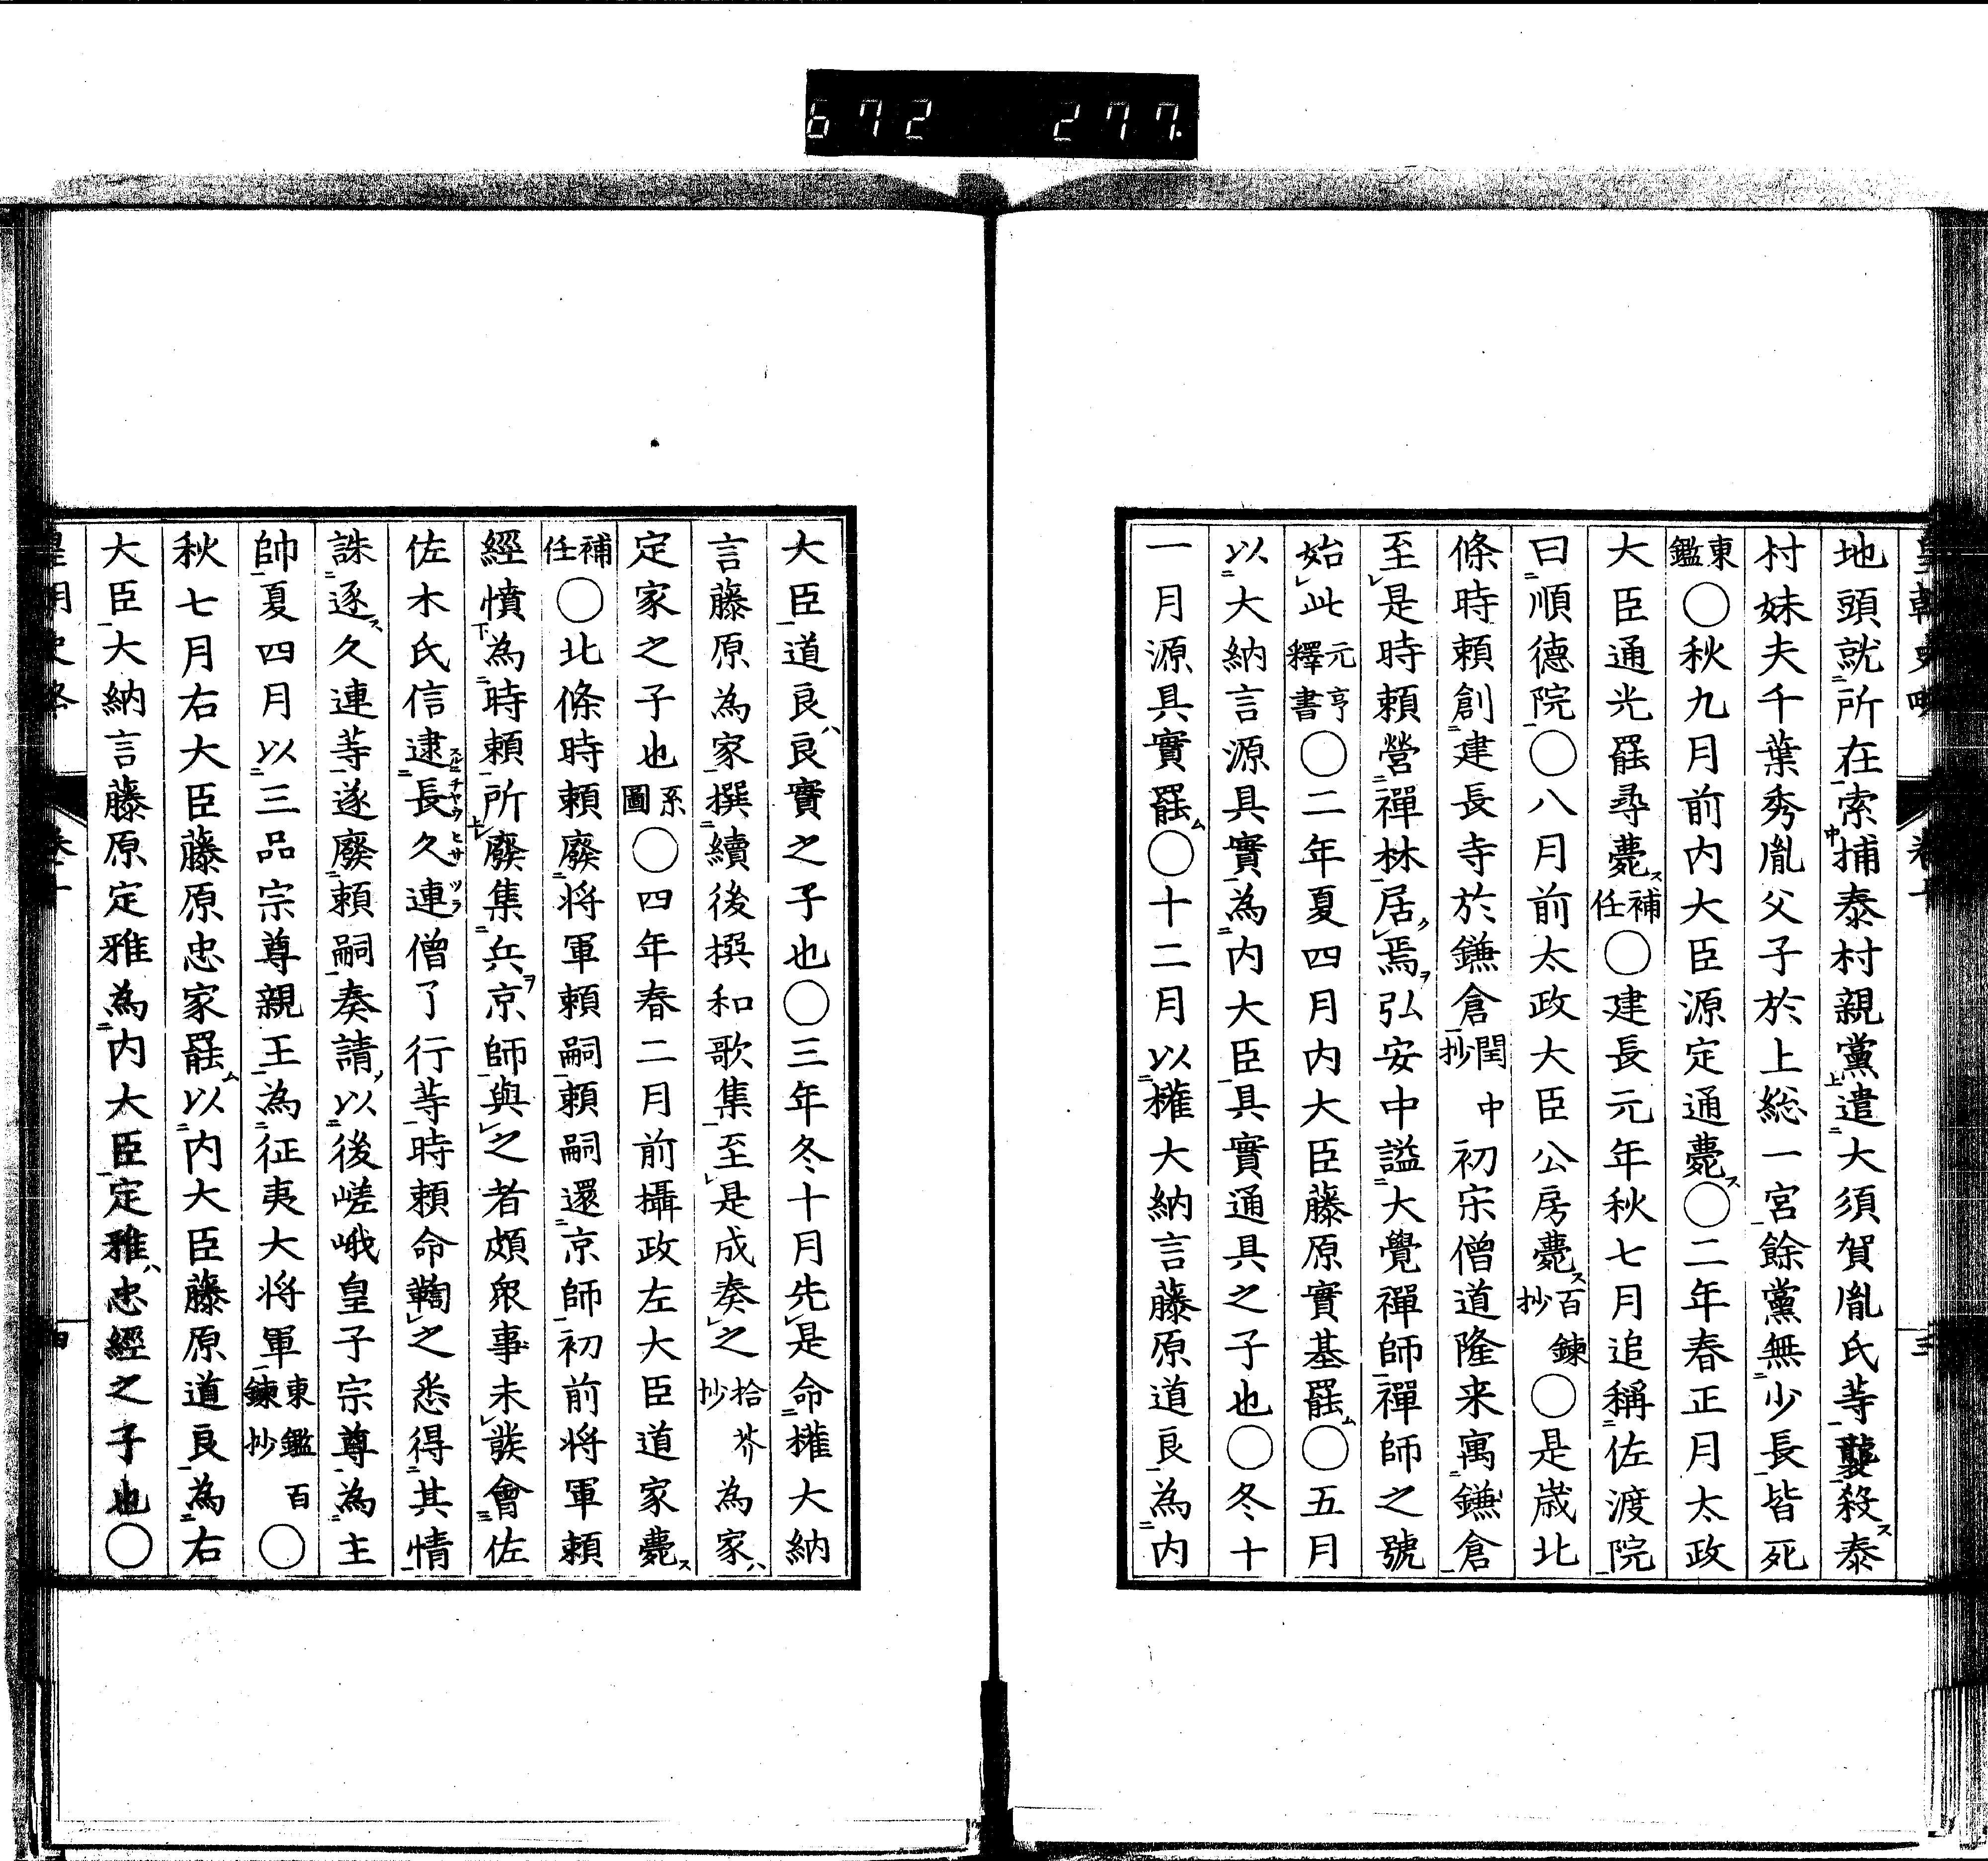 672 277.
地頭就所在索捕泰村親黨遣大須賀胤氏等襲殺泰
村妹夫千葉秀胤父子於上総一宮餘黨無少長皆死
東鑑〇秋九月前内大臣源定通薨〇二年春正月太政
大臣通光罷尋薨補任〇建長元年秋七月追稱佐渡院
曰順德院〇八月前太政大臣公房薨百鍊抄〇是歲北
條時頼創建長寺於鎌倉閏中抄初宋僧道隆来寓鎌倉
至是時頼營禪林居焉弘安中謚大覺禪師禪師之號
始此元亨釋書〇二年夏四月内大臣藤原實基罷〇五月
以大納言源具實為内大臣具實通具之子也〇冬十
一月源具實罷〇十二月以權大納言藤原道良為内
大臣道良良實之子也〇三年冬十月先是命權大納
言藤原為家撰續後撰和歌集至是成奏之拾芥抄為家
定家之子也系圖〇四年春二月前攝政左大臣道家薨
補任〇北條時頼廢将軍頼嗣頼嗣還京師初前将軍頼
經憤為時頼所廢集兵京師與之者頗衆事未發會佐
佐木氏信逮長久連僧了行等時頼命鞫之悉得其情
誅逐久連等遂廢頼嗣奏請以後嵯峨皇子宗尊為主
帥夏四月以三品宗尊親王為征夷大将軍東鑑百鍊抄〇
秋七月右大臣藤原忠家罷以内大臣藤原道良為右
大臣大納言藤原定雅為内大臣定雅忠經之子也〇